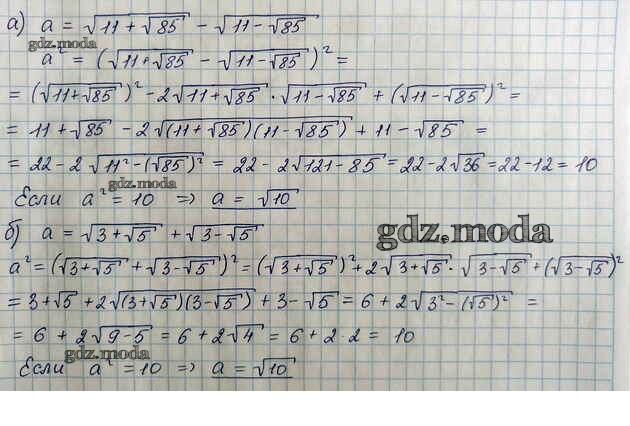 а) a = √(11 + √85) − √(11 − √85)
gdz.moda
a² = (√(11+√85) − √(11−√85))² =
= (√(11+√85))² − 2√(11+√85) · √(11−√85) + (√(11−√85))² =
= 11 + √85 − 2√((11+√85)(11−√85)) + 11 − √85 =
= 22 − 2√(11² − (√85)²) = 22 − 2√(121 − 85) = 22 − 2√36 = 22 − 12 = 10
gdz.moda
Если a² = 10 => a = √10
б) a = √(3+√5) + √(3−√5)
gdz.moda
a² = (√(3+√5) + √(3−√5))² = (√(3+√5))² + 2√(3+√5) · √(3−√5) + (√(3−√5))²
= 3+√5 + 2√((3+√5)(3−√5)) + 3−√5 = 6 + 2√(3² − (√5)²) =
= 6 + 2√(9−5) = 6 + 2√4 = 6 + 2·2 = 10
gdz.moda
Если a² = 10 => a = √10